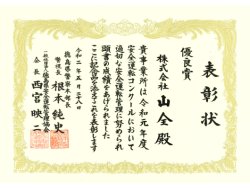 表彰状
優良賞
株式会社
山全殿
貴事業所は令和元年度
安全運転コンクールにおいて
適切な安全運転管理に努められ
顕著の成績をあげられました
ここに記念品を添えこれを表彰します
令和二年五月二八日
徳島県警察本部長
警視長 根本純史
一般社団法人徳島県安全運転管理協会
会長 西宮映二